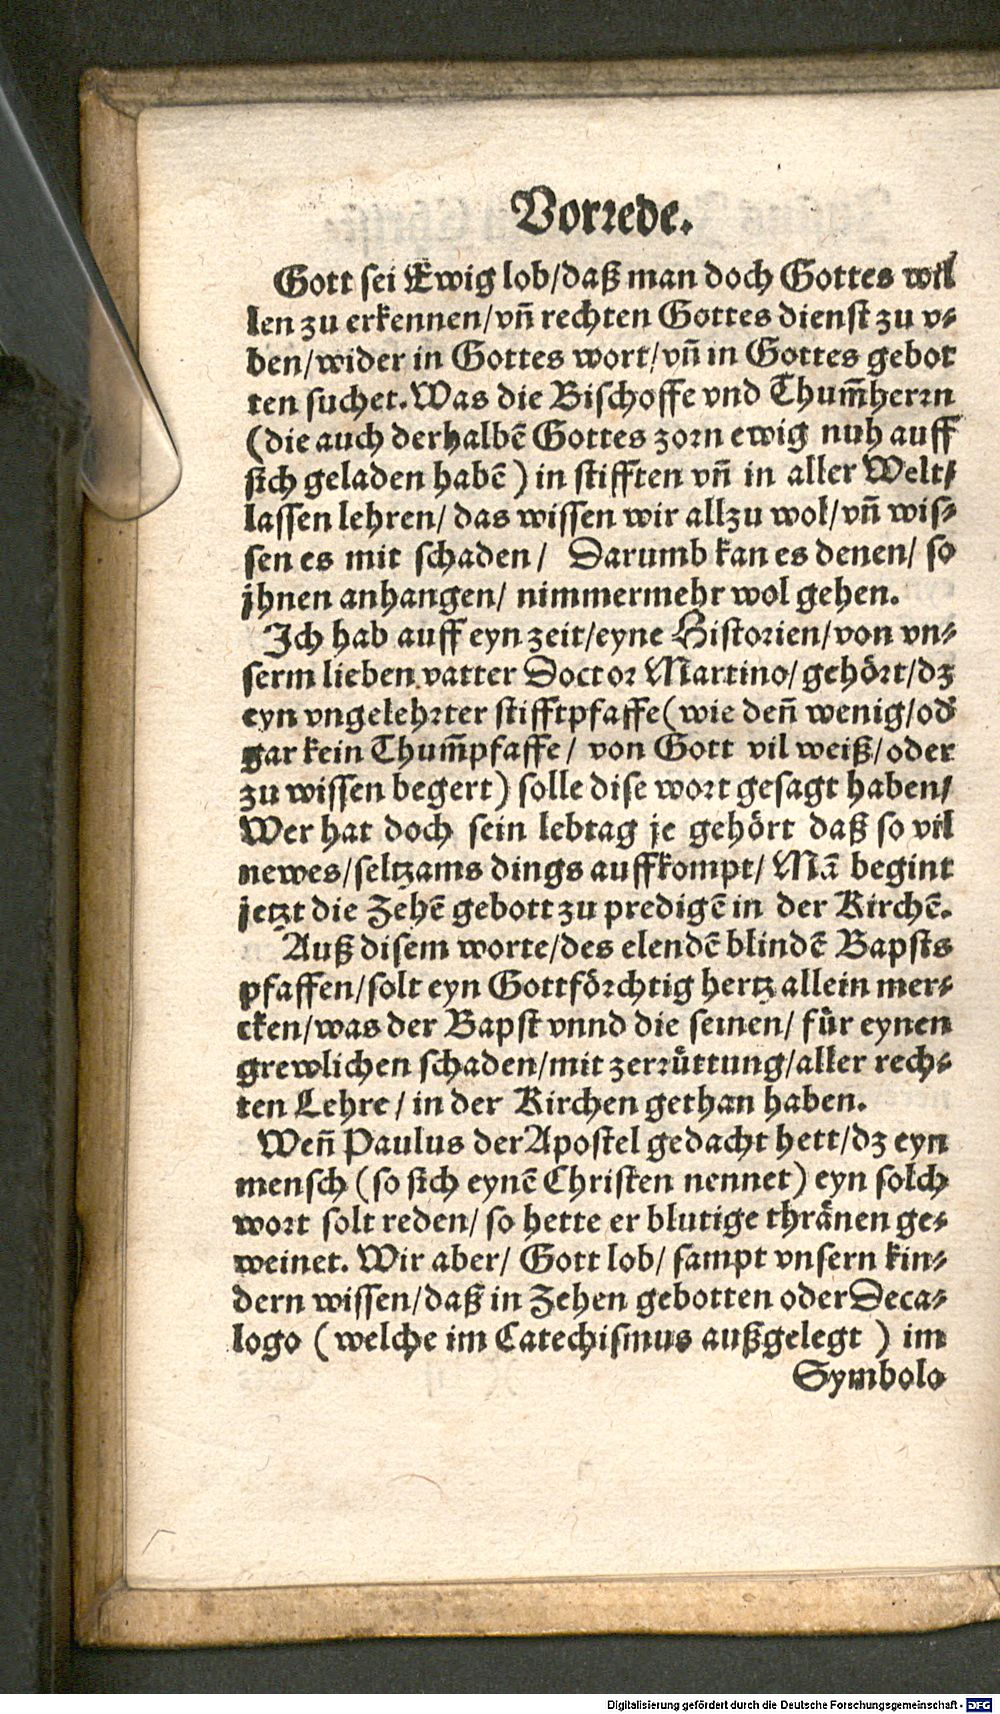 Vorrede.
Gott sei Ewig lob/daß man doch Gottes wil
len zu erkennen/vñ rechten Gottes dienst zu v⸗
ben/wider in Gottes wort/vñ in Gottes gebot
ten suchet. Was die Bischoffe vnd Thum̃herrn
(die auch derhalbẽ Gottes zorn ewig nuh auff
sich geladen habẽ) in stifften vñ in aller Welt/
lassen lehren/ das wissen wir allzu wol/vñ wis⸗
sen es mit schaden/ Darumb kan es denen/ so
jhnen anhangen/ nimmermehr wol gehen.
Ich hab auff eyn zeit/eyne Historien/von vn⸗
serm lieben vatter Doctor Martino/gehört/dz
eyn vngelehrter stifftpfaffe (wie deñ wenig/od̃
gar kein Thum̃pfaffe/ von Gott vil weiß/oder
zu wissen begert) solle dise wort gesagt haben/
Wer hat doch sein lebtag je gehört daß so vil
newes/seltzams dings auffkompt/ Mã begint
jetzt die Zehẽ gebott zu predigẽ in der Kirchẽ.
Auß disem worte/des elendẽ blindẽ Bapsts
pfaffen/solt eyn Gottförchtig hertz allein mer⸗
cken/was der Bapst vnnd die seinen/ für eynen
grewlichen schaden/mit zerrüttung/aller rech⸗
ten Lehre/ in der Kirchen gethan haben.
Weñ Paulus der Apostel gedacht hett/dz eyn
mensch (so sich eynẽ Christen nennet) eyn solch
wort solt reden/ so hette er blutige thränen ge⸗
weinet. Wir aber/ Gott lob/ sampt vnsern kin⸗
dern wissen/daß in Zehen gebotten oder Deca⸗
logo (welche im Catechismus außgelegt) im
Symbolo
Digitalisierung gefördert durch die Deutsche Forschungsgemeinschaft - DFG